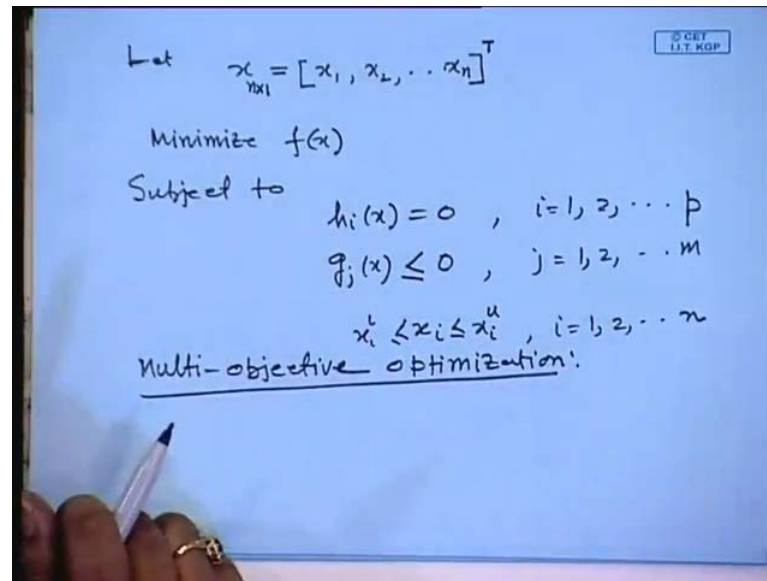 © CET
I.I.T. KGP
Let x_{n×1} = [x_1, x_2, .. x_n]^T
Minimize f(x)
Subject to
h_i(x) = 0 , i = 1, 2, ... p
g_j(x) ≤ 0 , j = 1, 2, .. m
x_i^L ≤ x_i ≤ x_i^u , i = 1, 2, .. n
Multi-objective optimization: